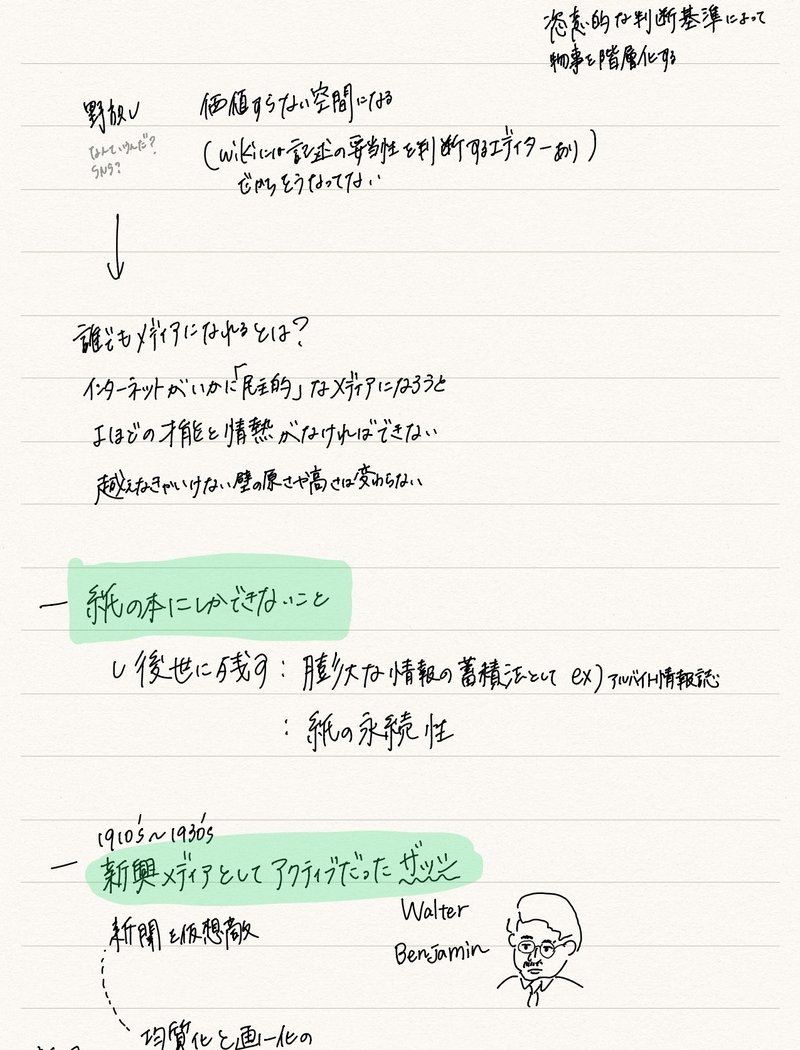 恣意的な判断基準によって
物事を階層化する
野放し
価値すらない空間になる
なんていうんだ?
SNS?
(wikiには記述の妥当性を判断するエディターあり)
だからそうなってない
誰でもメディアになれるとは?
インターネットがいかに「民主的」なメディアになろうと
よほどの才能と情熱がなければできない
越えなきゃいけない壁の原さや高さは変わらない
紙の本にしかできないこと
後世に残す：膨大な情報の蓄積法として ex)アルバイト情報誌
：紙の永続性
1910's〜1930's
新興メディアとしてアクティブだったザッシ
新聞を仮想敵
Walter
Benjamin
均質化と画一化の